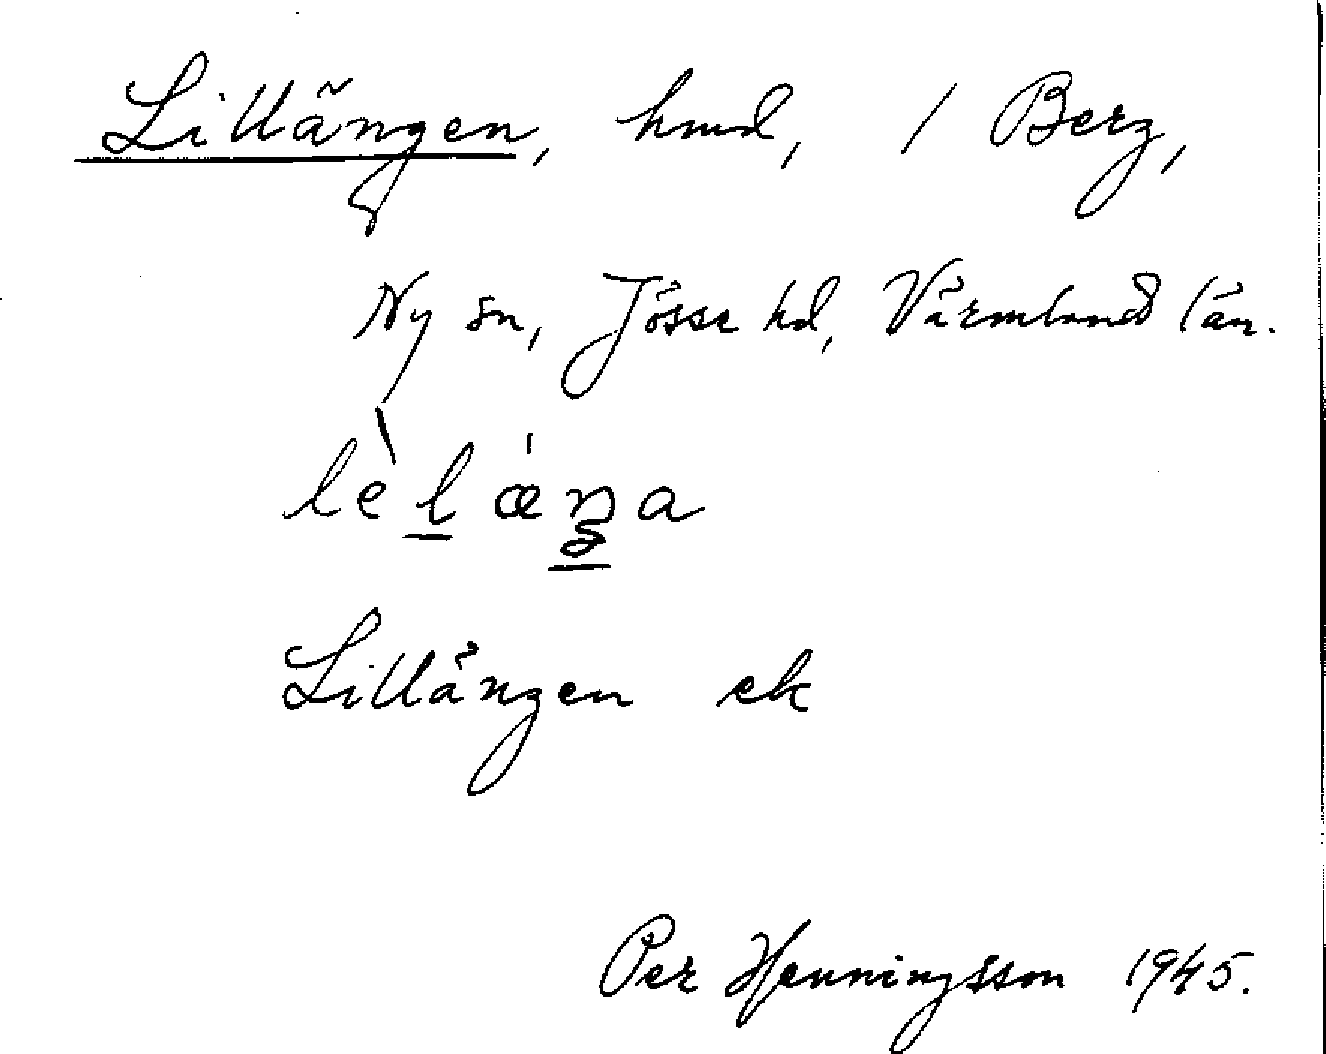 Lillängen, hmd, / Berg,
Ny sn, Jösse hd, Värmlands län.
lèl ǽŋa
Lillängen ek
Per Henningsson 1945.